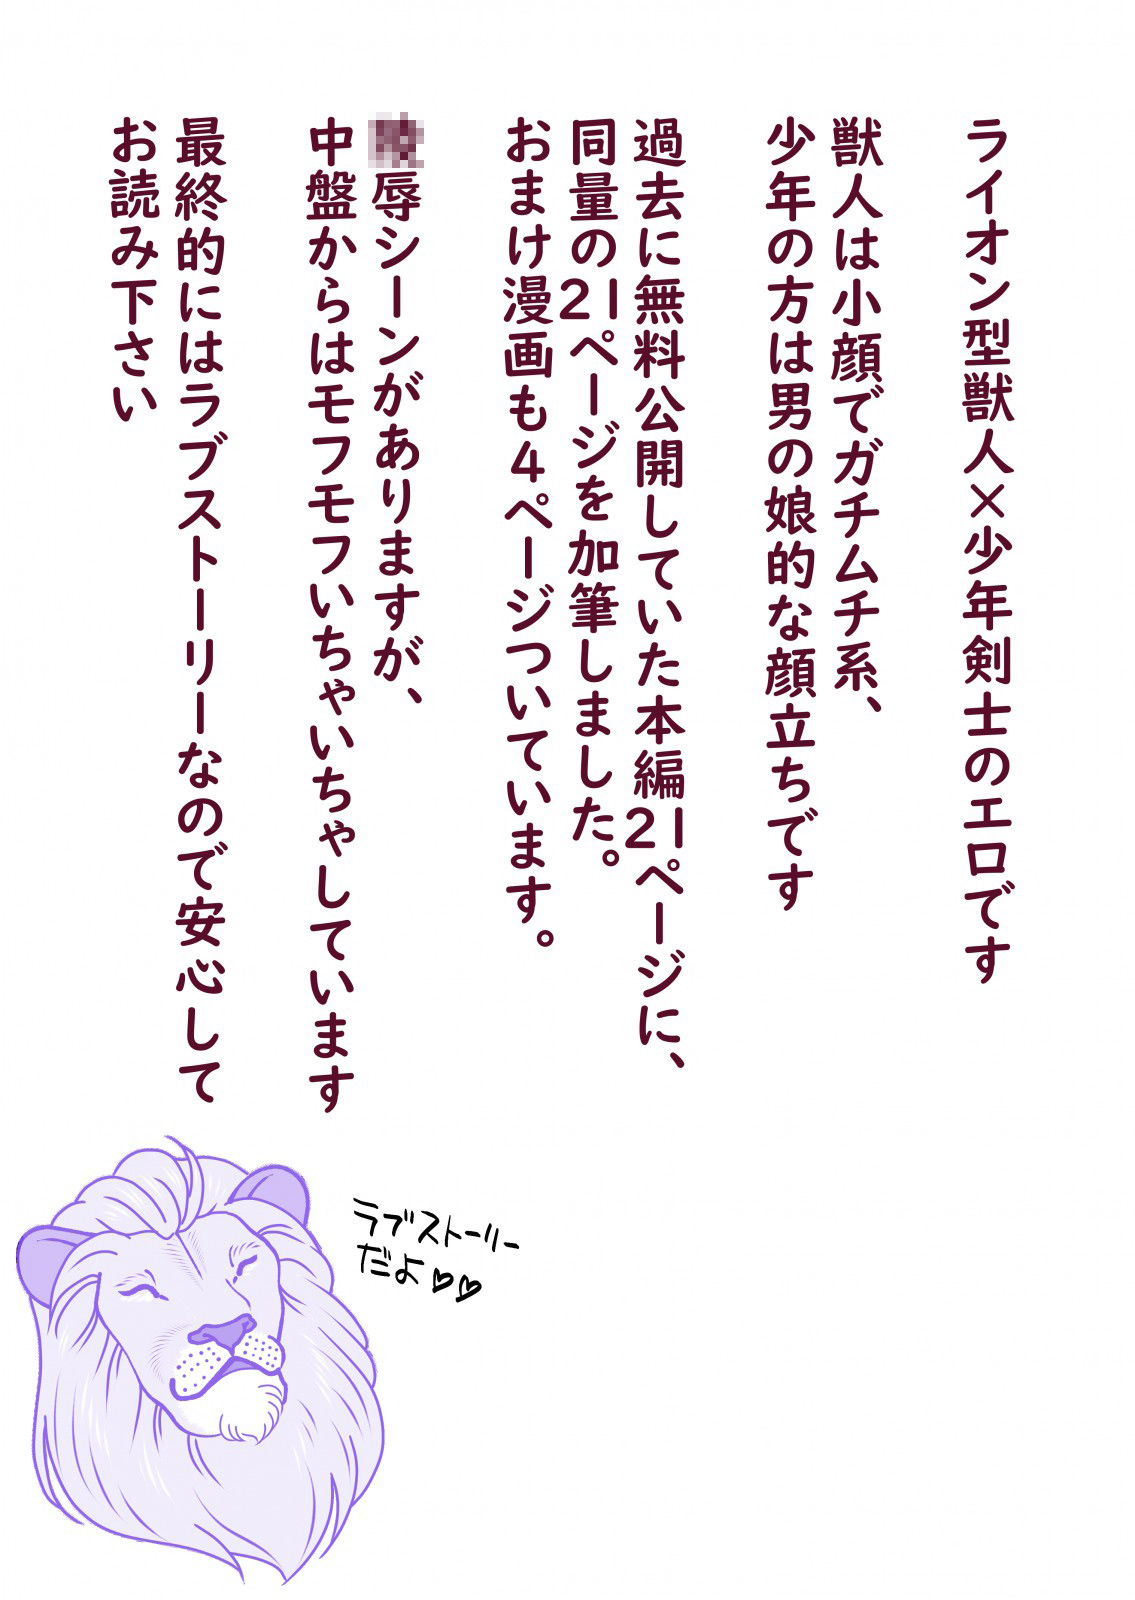 ライオン型獣人×少年剣士のエロです
獣人は小顔でガチムチ系、
少年の方は男の娘的な顔立ちです
過去に無料公開していた本編21ページに、
同量の21ページを加筆しました。
おまけ漫画も4ページついています。
辱シーンがありますが、
中盤からはモフモフいちゃいちゃしています
最終的にはラブストーリーなので安心して
お読み下さい
ラブストーリー
だよ♡♡